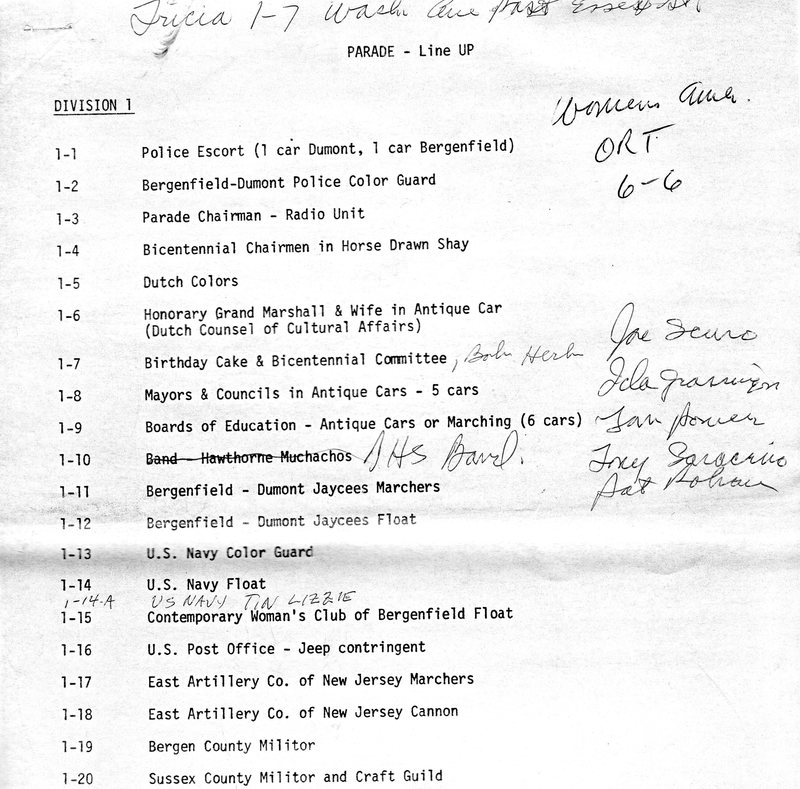 Tricia 1-7 Wash Ave past Essex St
PARADE - Line UP
DIVISION 1
Womens Amer.
ORT
6-6
1-1 Police Escort (1 car Dumont, 1 car Bergenfield)
1-2 Bergenfield-Dumont Police Color Guard
1-3 Parade Chairman - Radio Unit
1-4 Bicentennial Chairmen in Horse Drawn Shay
1-5 Dutch Colors
1-6 Honorary Grand Marshall & Wife in Antique Car
(Dutch Counsel of Cultural Affairs)
1-7 Birthday Cake & Bicentennial Committee, Bob
Joe
1-8 Mayors & Councils in Antique Cars - 5 cars
Ida
1-9 Boards of Education - Antique Cars or Marching (6 cars)
1-10 Band - Hawthorne Muchachos DHS Band.
Tony
Pat
1-11 Bergenfield - Dumont Jaycees Marchers
1-12 Bergenfield - Dumont Jaycees Float
1-13 U.S. Navy Color Guard
1-14 U.S. Navy Float
1-14-A US NAVY TIN LIZZIE
1-15 Contemporary Woman's Club of Bergenfield Float
1-16 U.S. Post Office - Jeep contringent
1-17 East Artillery Co. of New Jersey Marchers
1-18 East Artillery Co. of New Jersey Cannon
1-19 Bergen County Militor
1-20 Sussex County Militor and Craft Guild